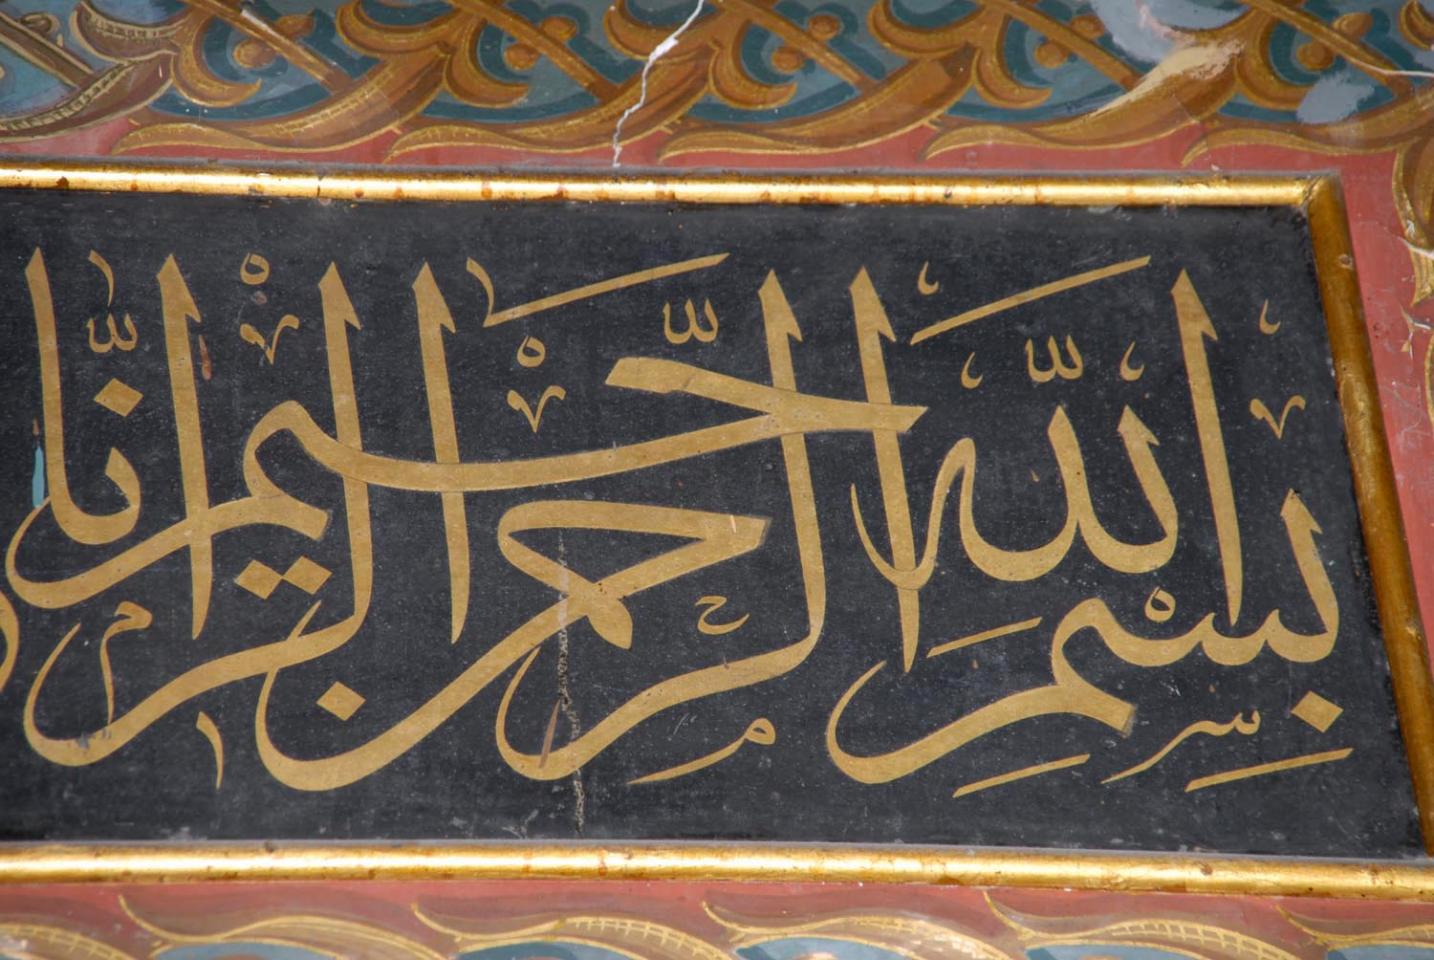 بِسْمِ اللّٰهِ الرَّحْمٰنِ الرَّحِيْمِ اِنَّا